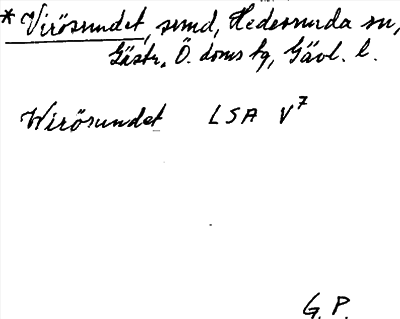 * Virösundet, sund, Hedesunda sn,
Gästr. Ö. doms tg, Gävl. l.
Wirösundet LSA V7
G. P.